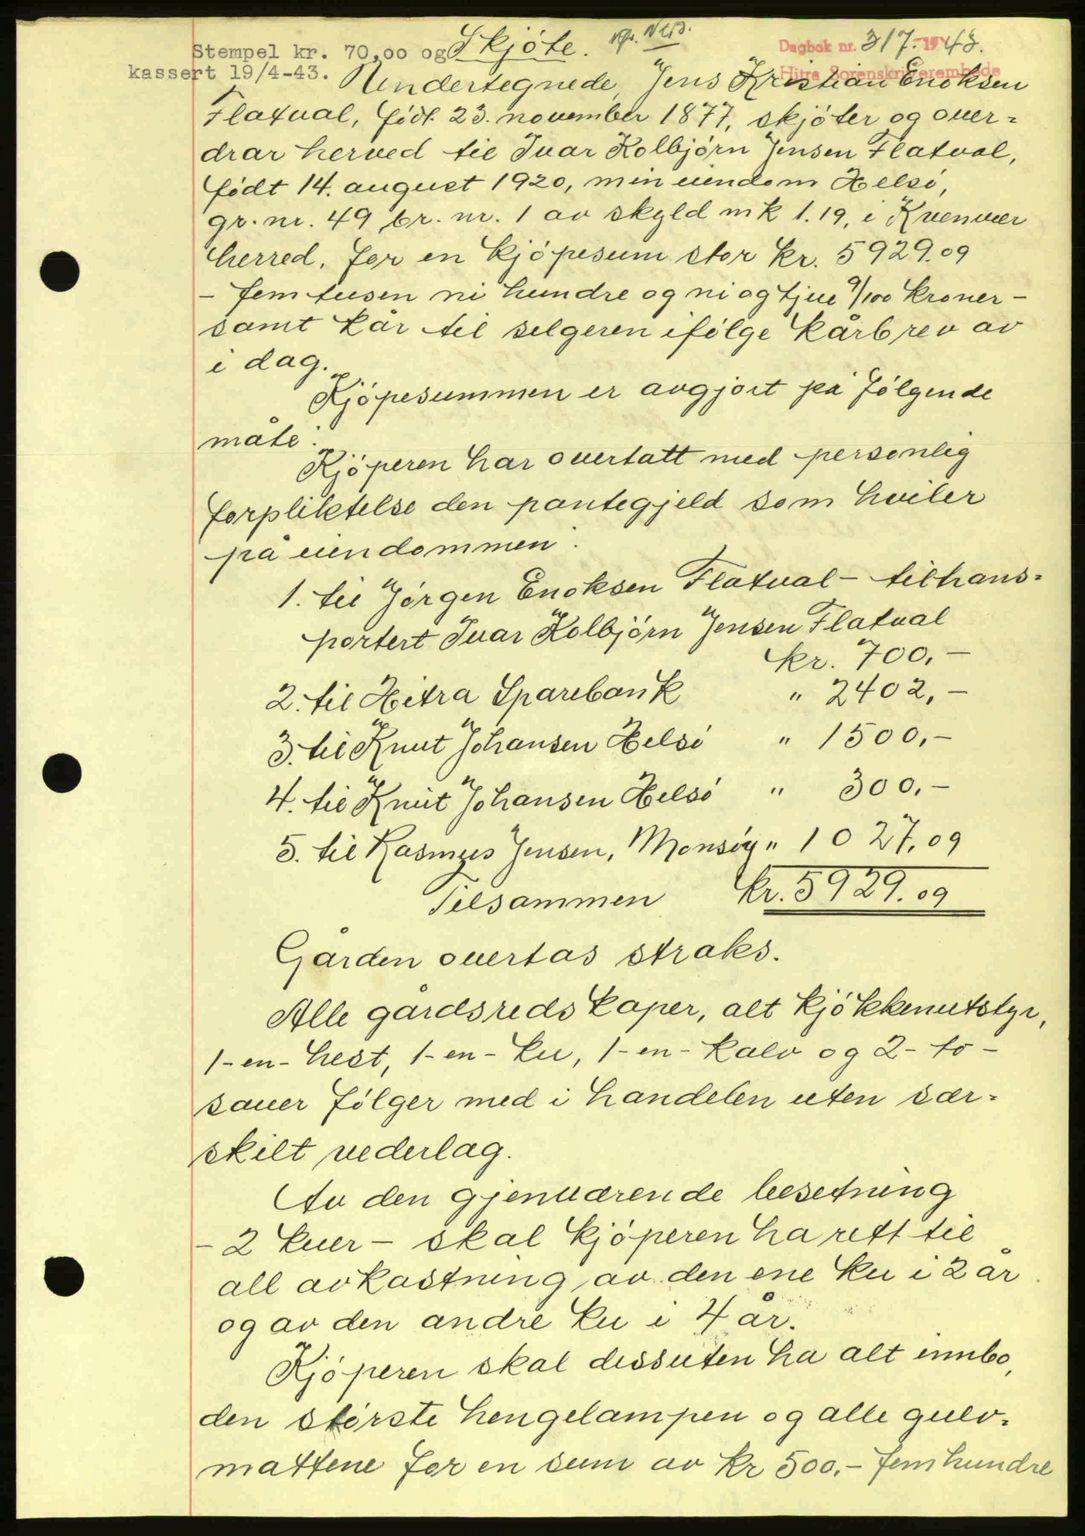 Stempel kr. 70,00 og Skjöte.
Dagbok nr. 317.-1943.
kassert 19/4-43.
Hitra Sorenskriverembede
Undertegnede, Jens Kristian Enoksen
Flatval, født 23. november 1877, skjöter og over=
drar herved til Ivar Kolbjörn Jensen Flatval,
født 14. august 1920, min eiendom Helsö,
gr. nr. 49 br. nr. 1 av skyld mk 1.19, i Kvenvær
herred, for en kjöpesum stor kr. 5929.09
- fem tusen ni hundre og ni og tjue 9/100 kroner -
samt kår til selgeren ifölge kårbrev av
i dag.
Kjöpesummen er avgjort på fölgende
måte:
Kjöperen har overtatt med personlig
forpliktelse den pantegjeld som hviler
på eiendommen:
1. til Jörgen Enoksen Flatval - tilhans=
portert Ivar Kolbjörn Jensen Flatval
kr. 700,-
2. til Hitra Sparebank " 2402,-
3. til Knut Johansen Helsö " 1500,-
4. til Knut Johansen Helsö " 300,-
5. til Rasmus Jensen, Monsöy " 1027,09
Tilsammen kr. 5929.09
Gården overtas straks.
Alle gårdsredskaper, alt kjökkenutstyr,
1-en- hest, 1-en- ku, 1-en- kalv og 2- to -
sauer fölger med i handelen uten sær=
skilt vederlag.
Av den gjenværende besetning
- 2 kuer - skal kjöperen ha rett til
all avkastning av den ene ku i 2 år
og av den andre ku i 4 år.
Kjöperen skal dessuten ha alt innbo,
den störste hengelampen og alle gulv=
mattene for en sum av kr 500.- fem hundre